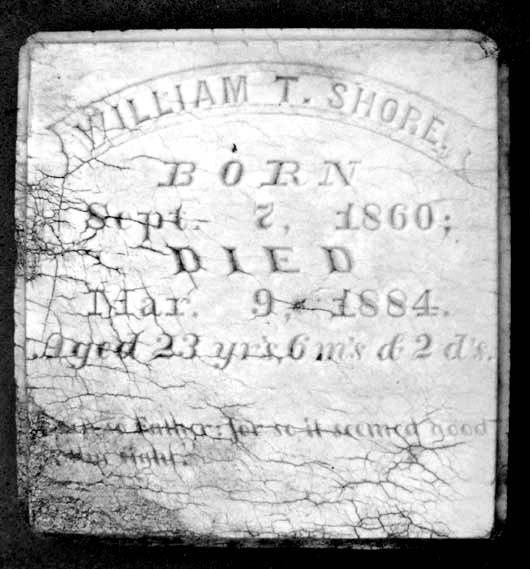 WILLIAM T. SHORE,
BORN
Sept. 7, 1860;
DIED
Mar. 9, 1884.
Aged 23 yr's, 6 m's & 2 d's.
Even so Father: for so it seemed good
thy sight.